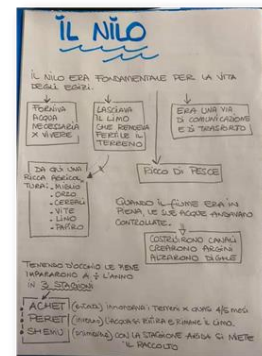 IL NILO
IL NILO ERA FONDAMENTALE PER LA VITA
DEGLI EGIZI.
FORNIVA
ACQUA
NECESSARIA
X VIVERE
LASCIAVA
IL LIMO
CHE RENDEVA
FERTILE IL
TERRENO
ERA UNA VIA
DI COMUNICAZIONE
E DI TRASPORTO
DA QUI UNA
RICCA AGRICOL_
TURA: • MIGLIO
• ORZO
• CEREALI
• VITE
• LINO
• PAPIRO
RICCO DI PESCE
QUANDO IL FIUME ERA IN
PIENA, LE SUE ACQUE ANDAVANO
CONTROLLATE.
COSTRUIRONO CANALI
CREARONO ARGINI
ALZARONO DIGHE
TENENDO D'OCCHIO LE PIENE
IMPARARONO A ÷ L'ANNO
IN 3 STAGIONI
ACHET INONDAVA I TERRENI X QUASI 4/5 MESI
PERET L'ACQUA SI RITIRA E RIMANE IL LIMO.
SHEMU CON LA STAGIONE ARIDA SI METE
IL RACCOLTO